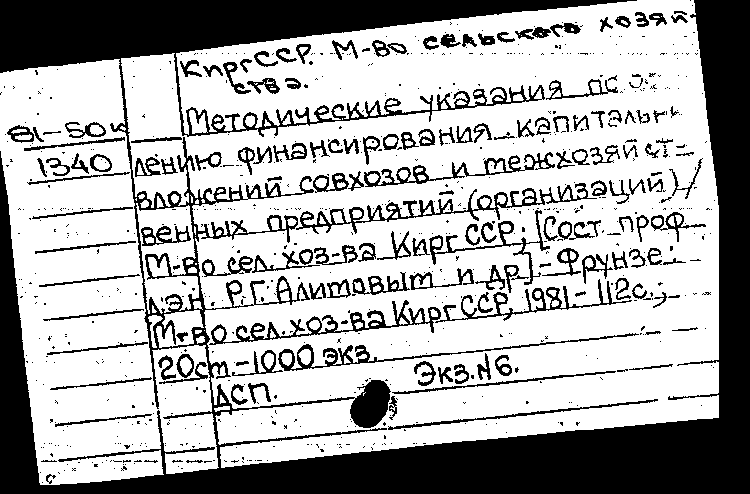 КиргССР. М-во сельского хозяй-
ства.
81-50к
1340
Методические указания по
лению финансирования капитальн
вложений совхозов и межхозяйст=
венных предприятий (организаций)/
М-во сел. хоз-ва Кирг ССР; [Сост. проф
д.э.н. Р.Г. Алитовыт и др.]-Фрунзе:
М-во сел. хоз-ва КиргССР, 1981.-112с.;
20ст.-1000 экз.
ДСП.
Экз.№6.